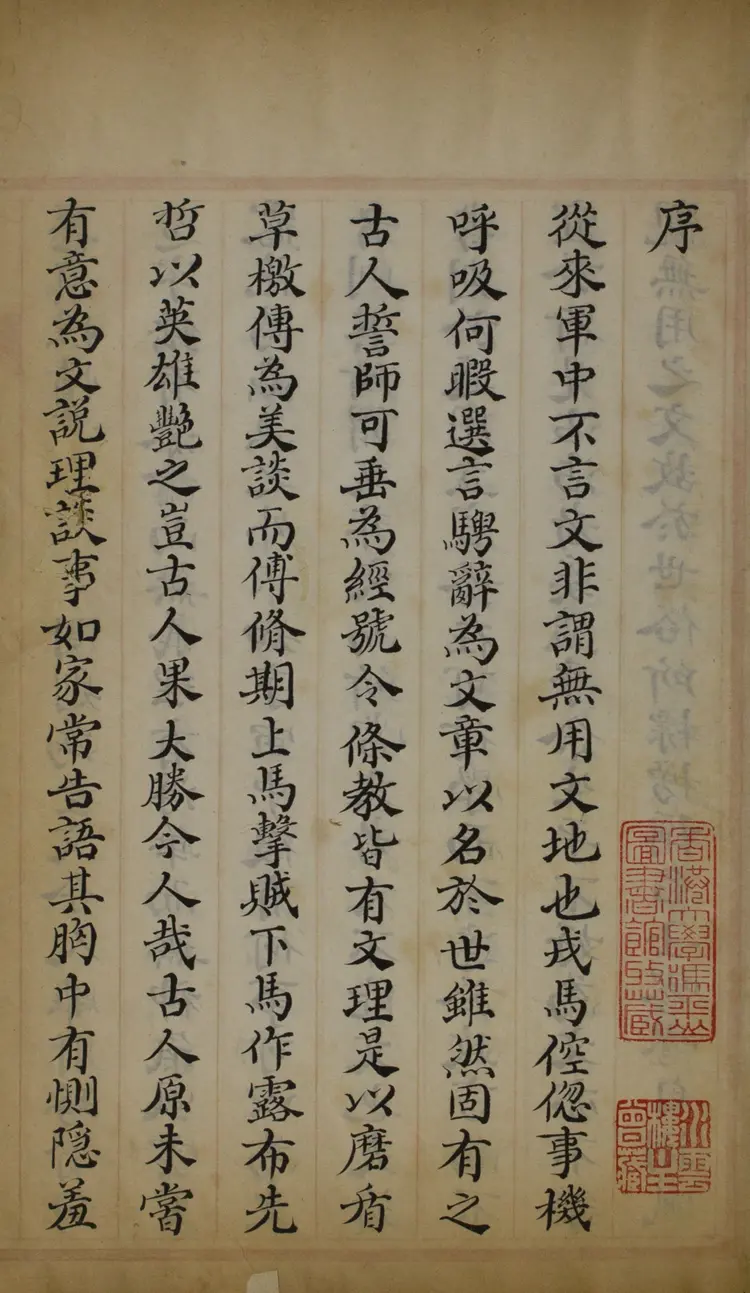 序
從來軍中不言文非謂無用文地也戎馬倥偬事機
呼吸何暇選言騁辭為文章以名於世雖然固有之
古人誓師可垂為經號令條教皆有文理是以磨盾
草檄傳為美談而傅脩期上馬擊賊下馬作露布先
哲以英雄艷之豈古人果大勝今人哉古人原未嘗
有意為文説理談事如家常告語其胸中有惻隠羞
香港大學馮平山
圖書館藏